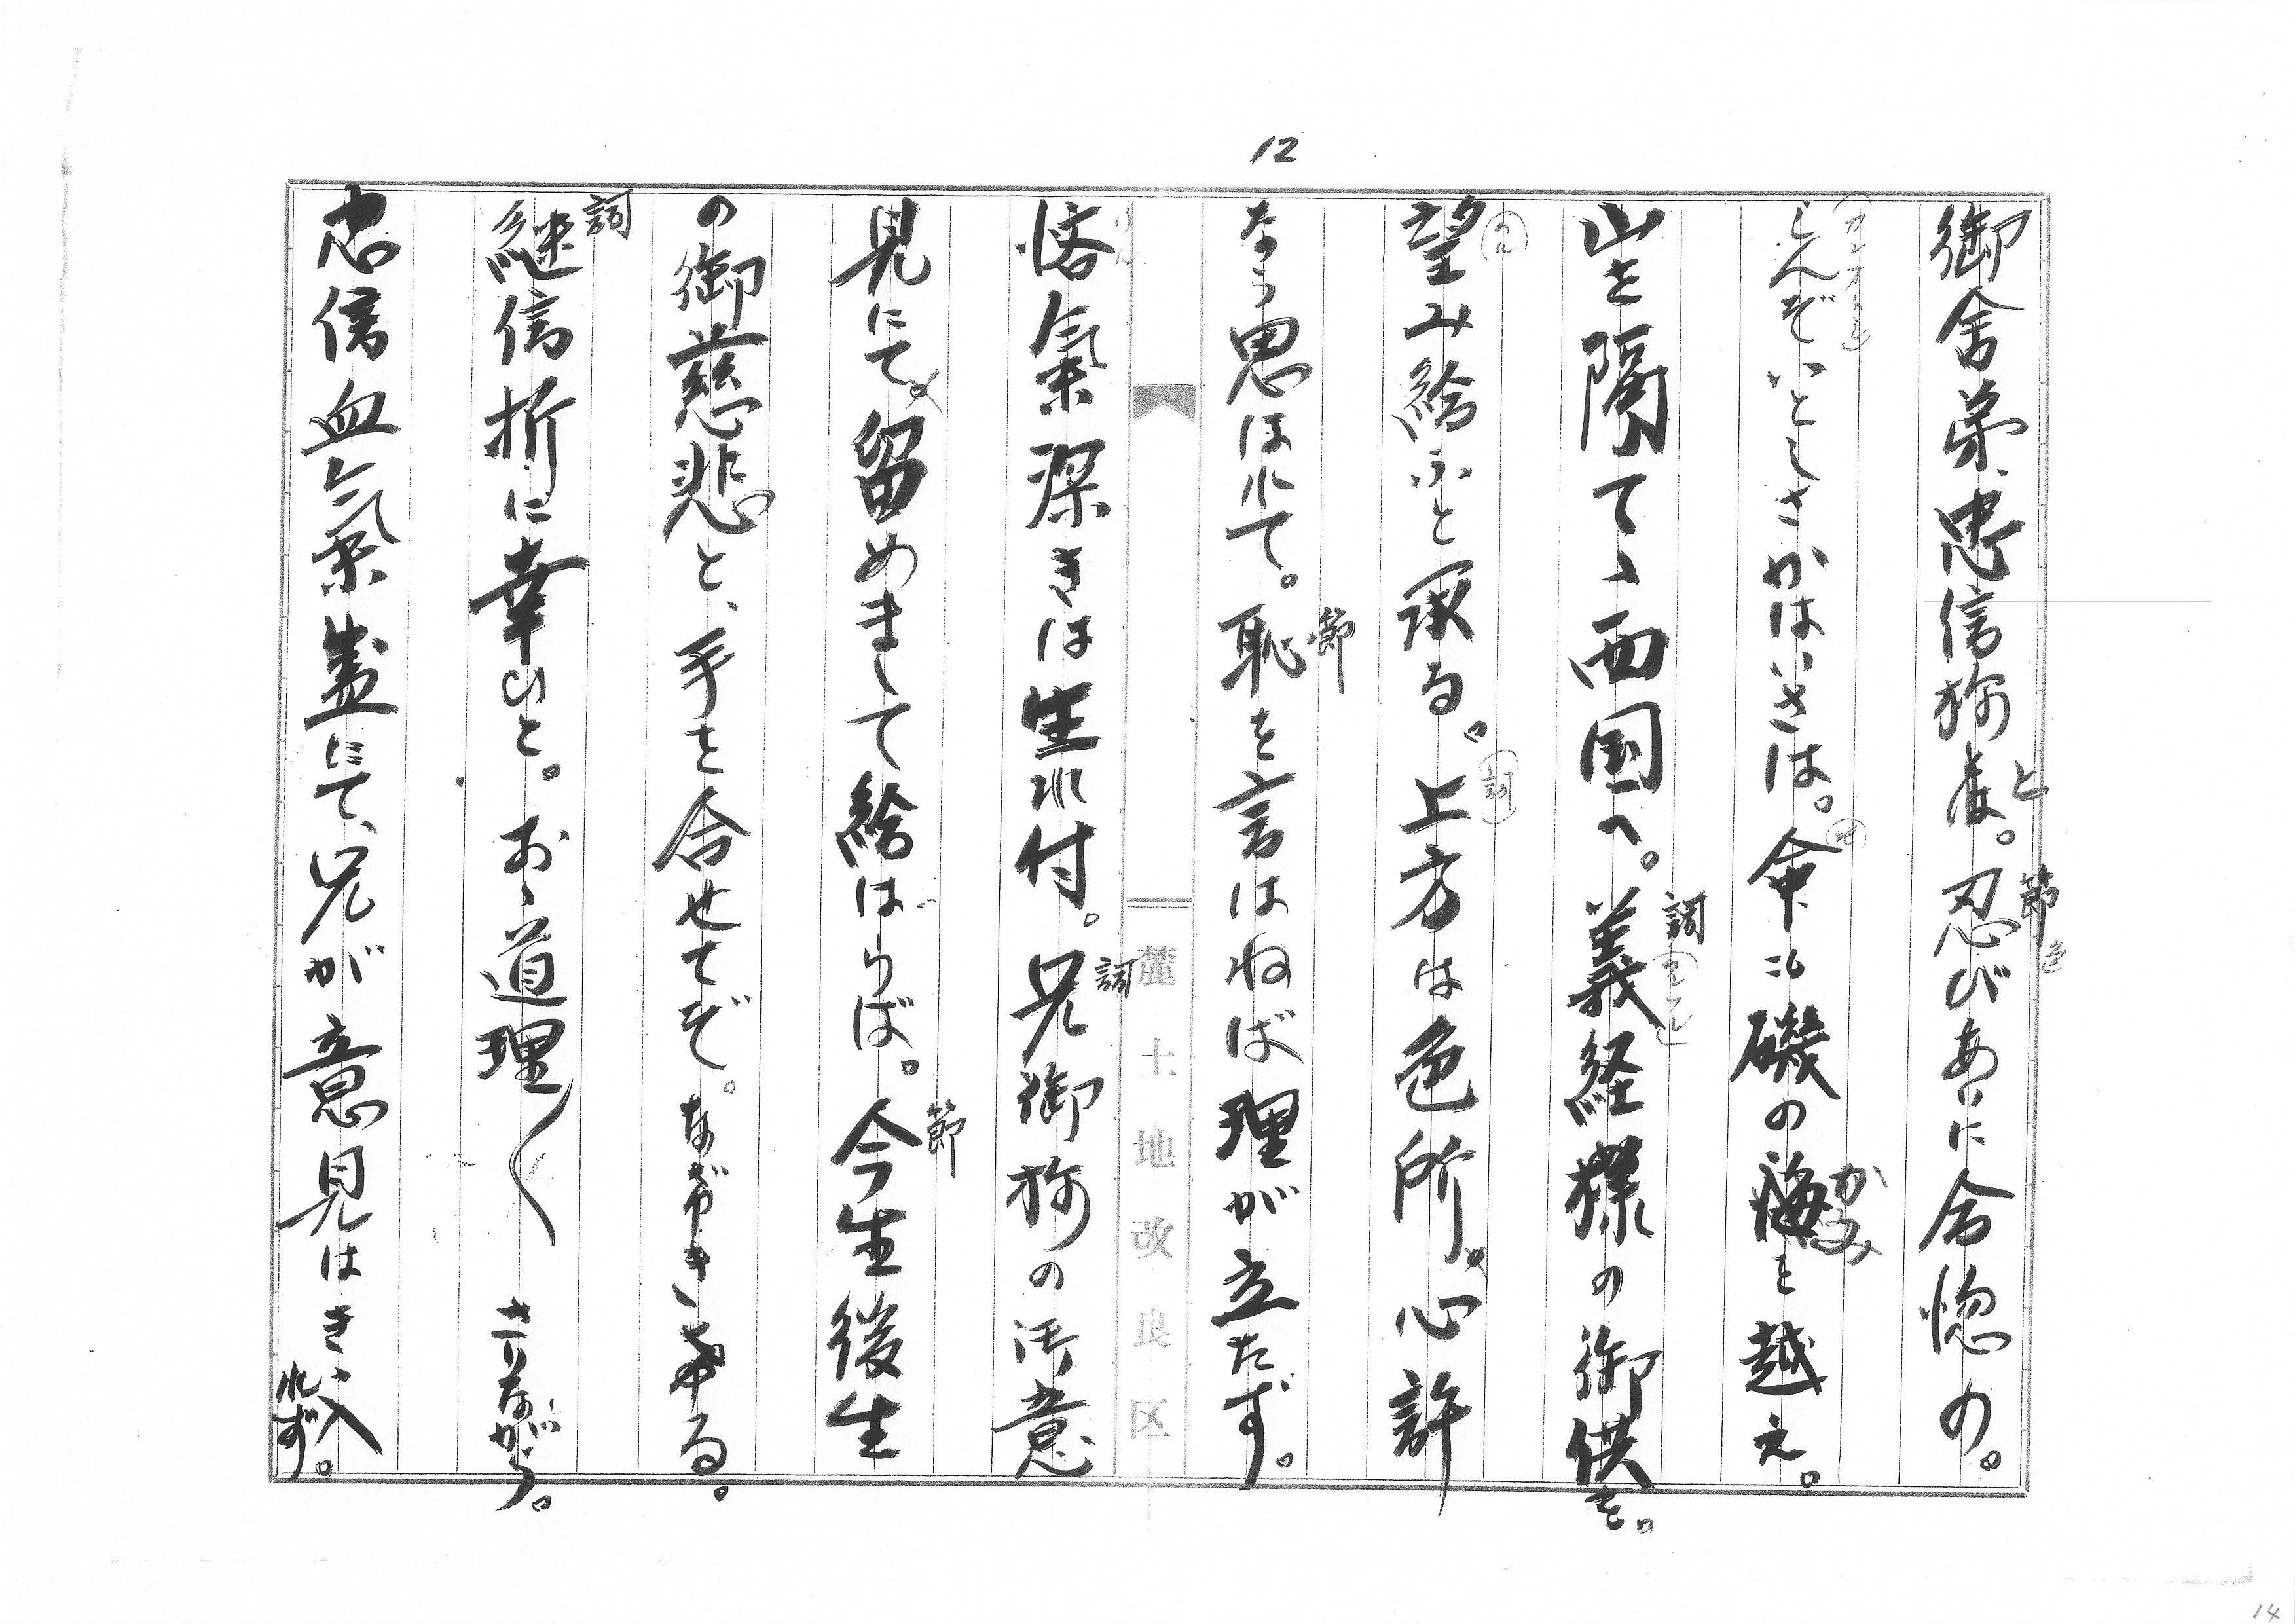 12
御舎弟、忠信称と。忍びあいに合惚の。
しんぞいとしさかはいさは。命にも磯の海を越え。
山を隔てゝ西国へ。義経様の御供を。
望み給ふと承る。上方は色所。心許
なう思はれて。恥を言はねば理が立たず。
悋氣深きは生れ付。兄御称の御意
見にて。留めまして給はらば。今生後生
の御慈悲と、手を合せてぞ。なげきゐる。
継信折に幸ひと。おゝ道理〱さりながら。
忠信血氣盛にて、兄が意見はきゝ入れず。
節
色
かみ
詞
詞
節
りん
詞
節
詞
麓土地改良区
14